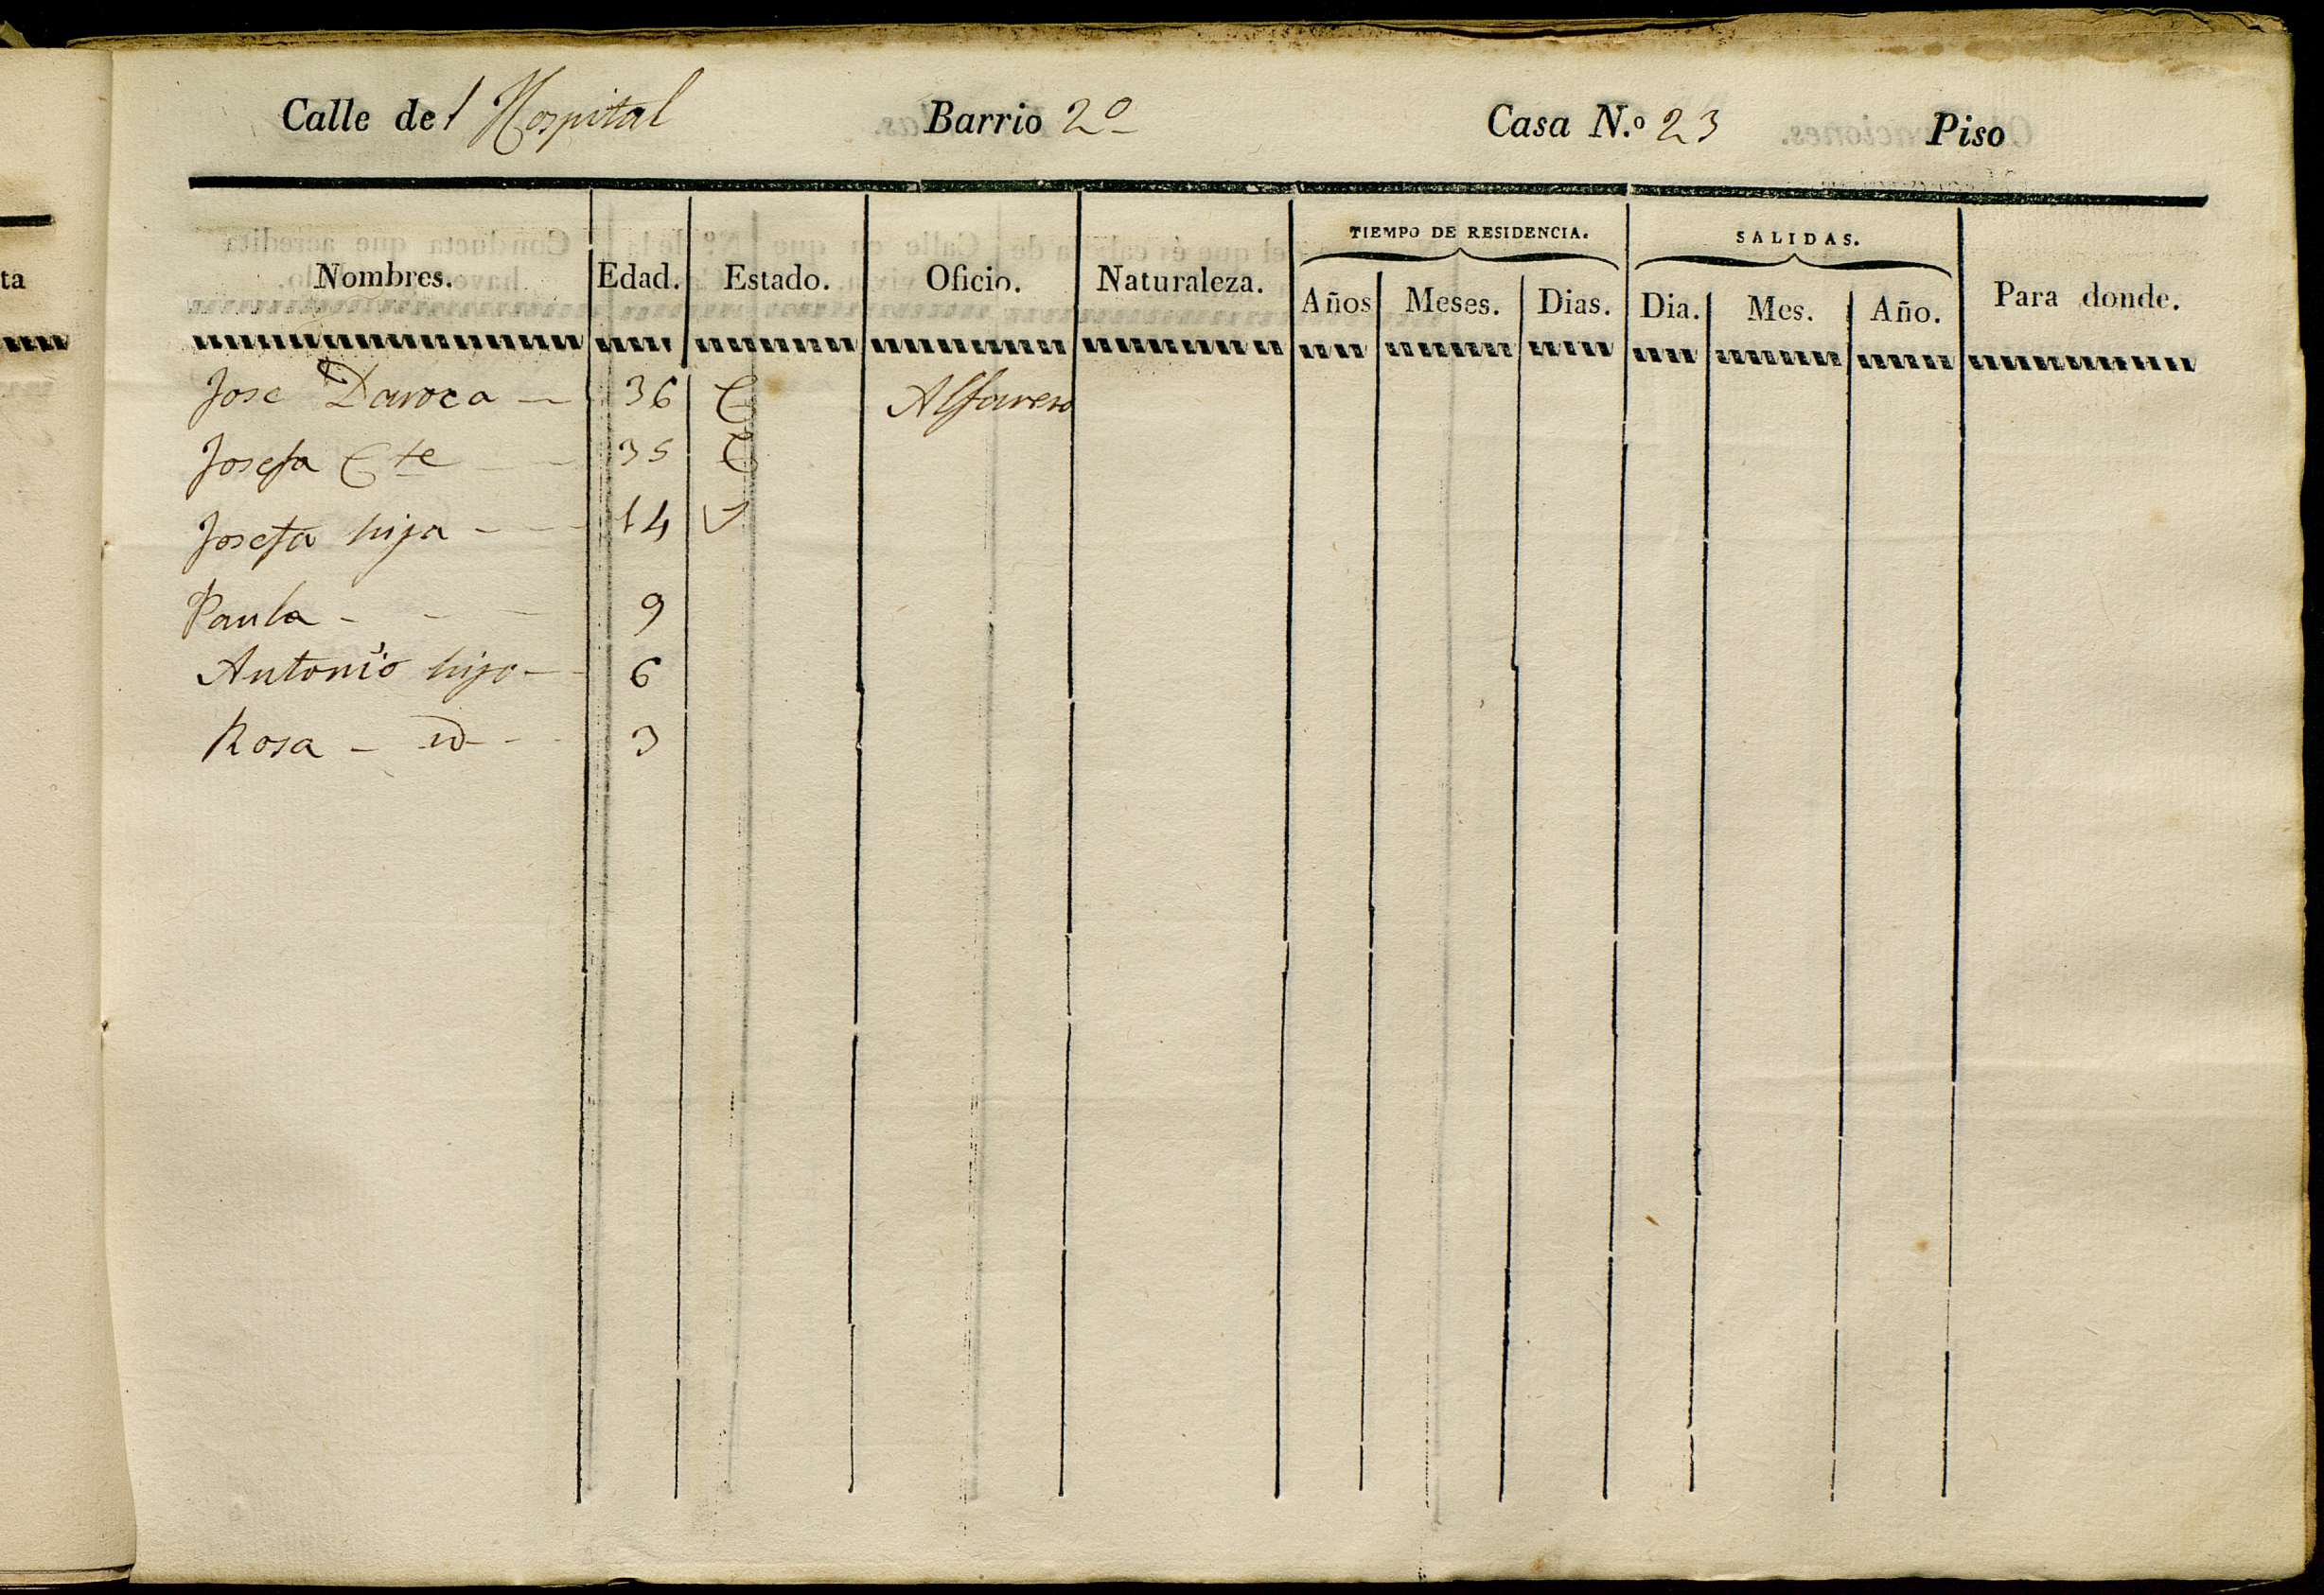 Calle del Hospital Barrio 2º Casa N.º 23 Piso
TIEMPO DE RESIDENCIA. SALIDAS.
Nombres. Edad. Estado. Oficio. Naturaleza. Años Meses. Dias. Dia. Mes. Año. Para donde.
ta
Jose Daroca 36 C Alfarero
Josefa Cte 35 C
Josefa hija 14
Paula 9
Antonio hijo 6
Rosa id 3